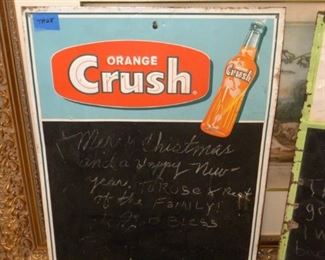 ORANGE
Crush
Crush
Merry Christmas
and a Happy New-
year, To Rose & Rest
of the FAMILY!
God Bless